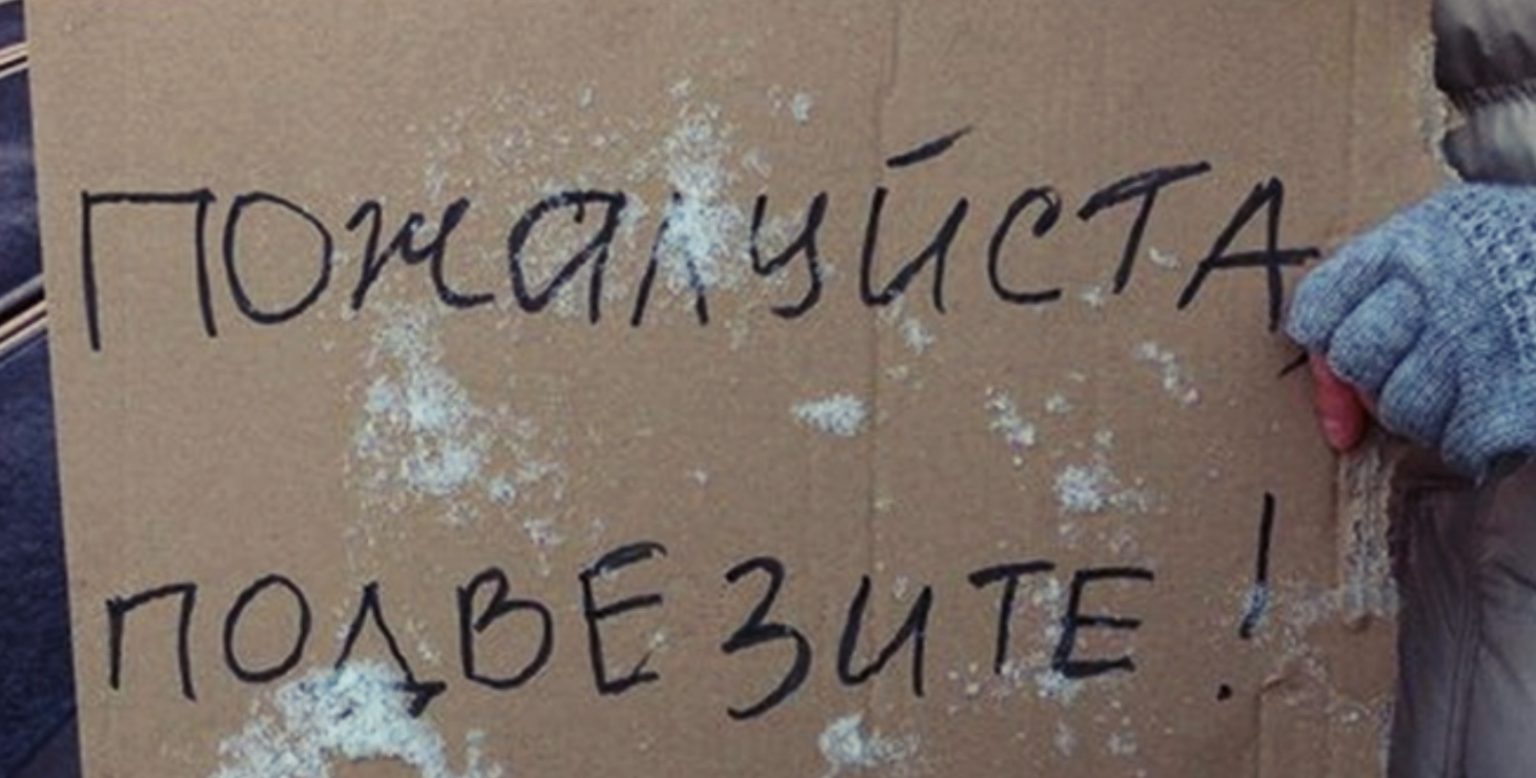 ПОЖАЛУЙСТА,
ПОДВЕЗИТЕ!